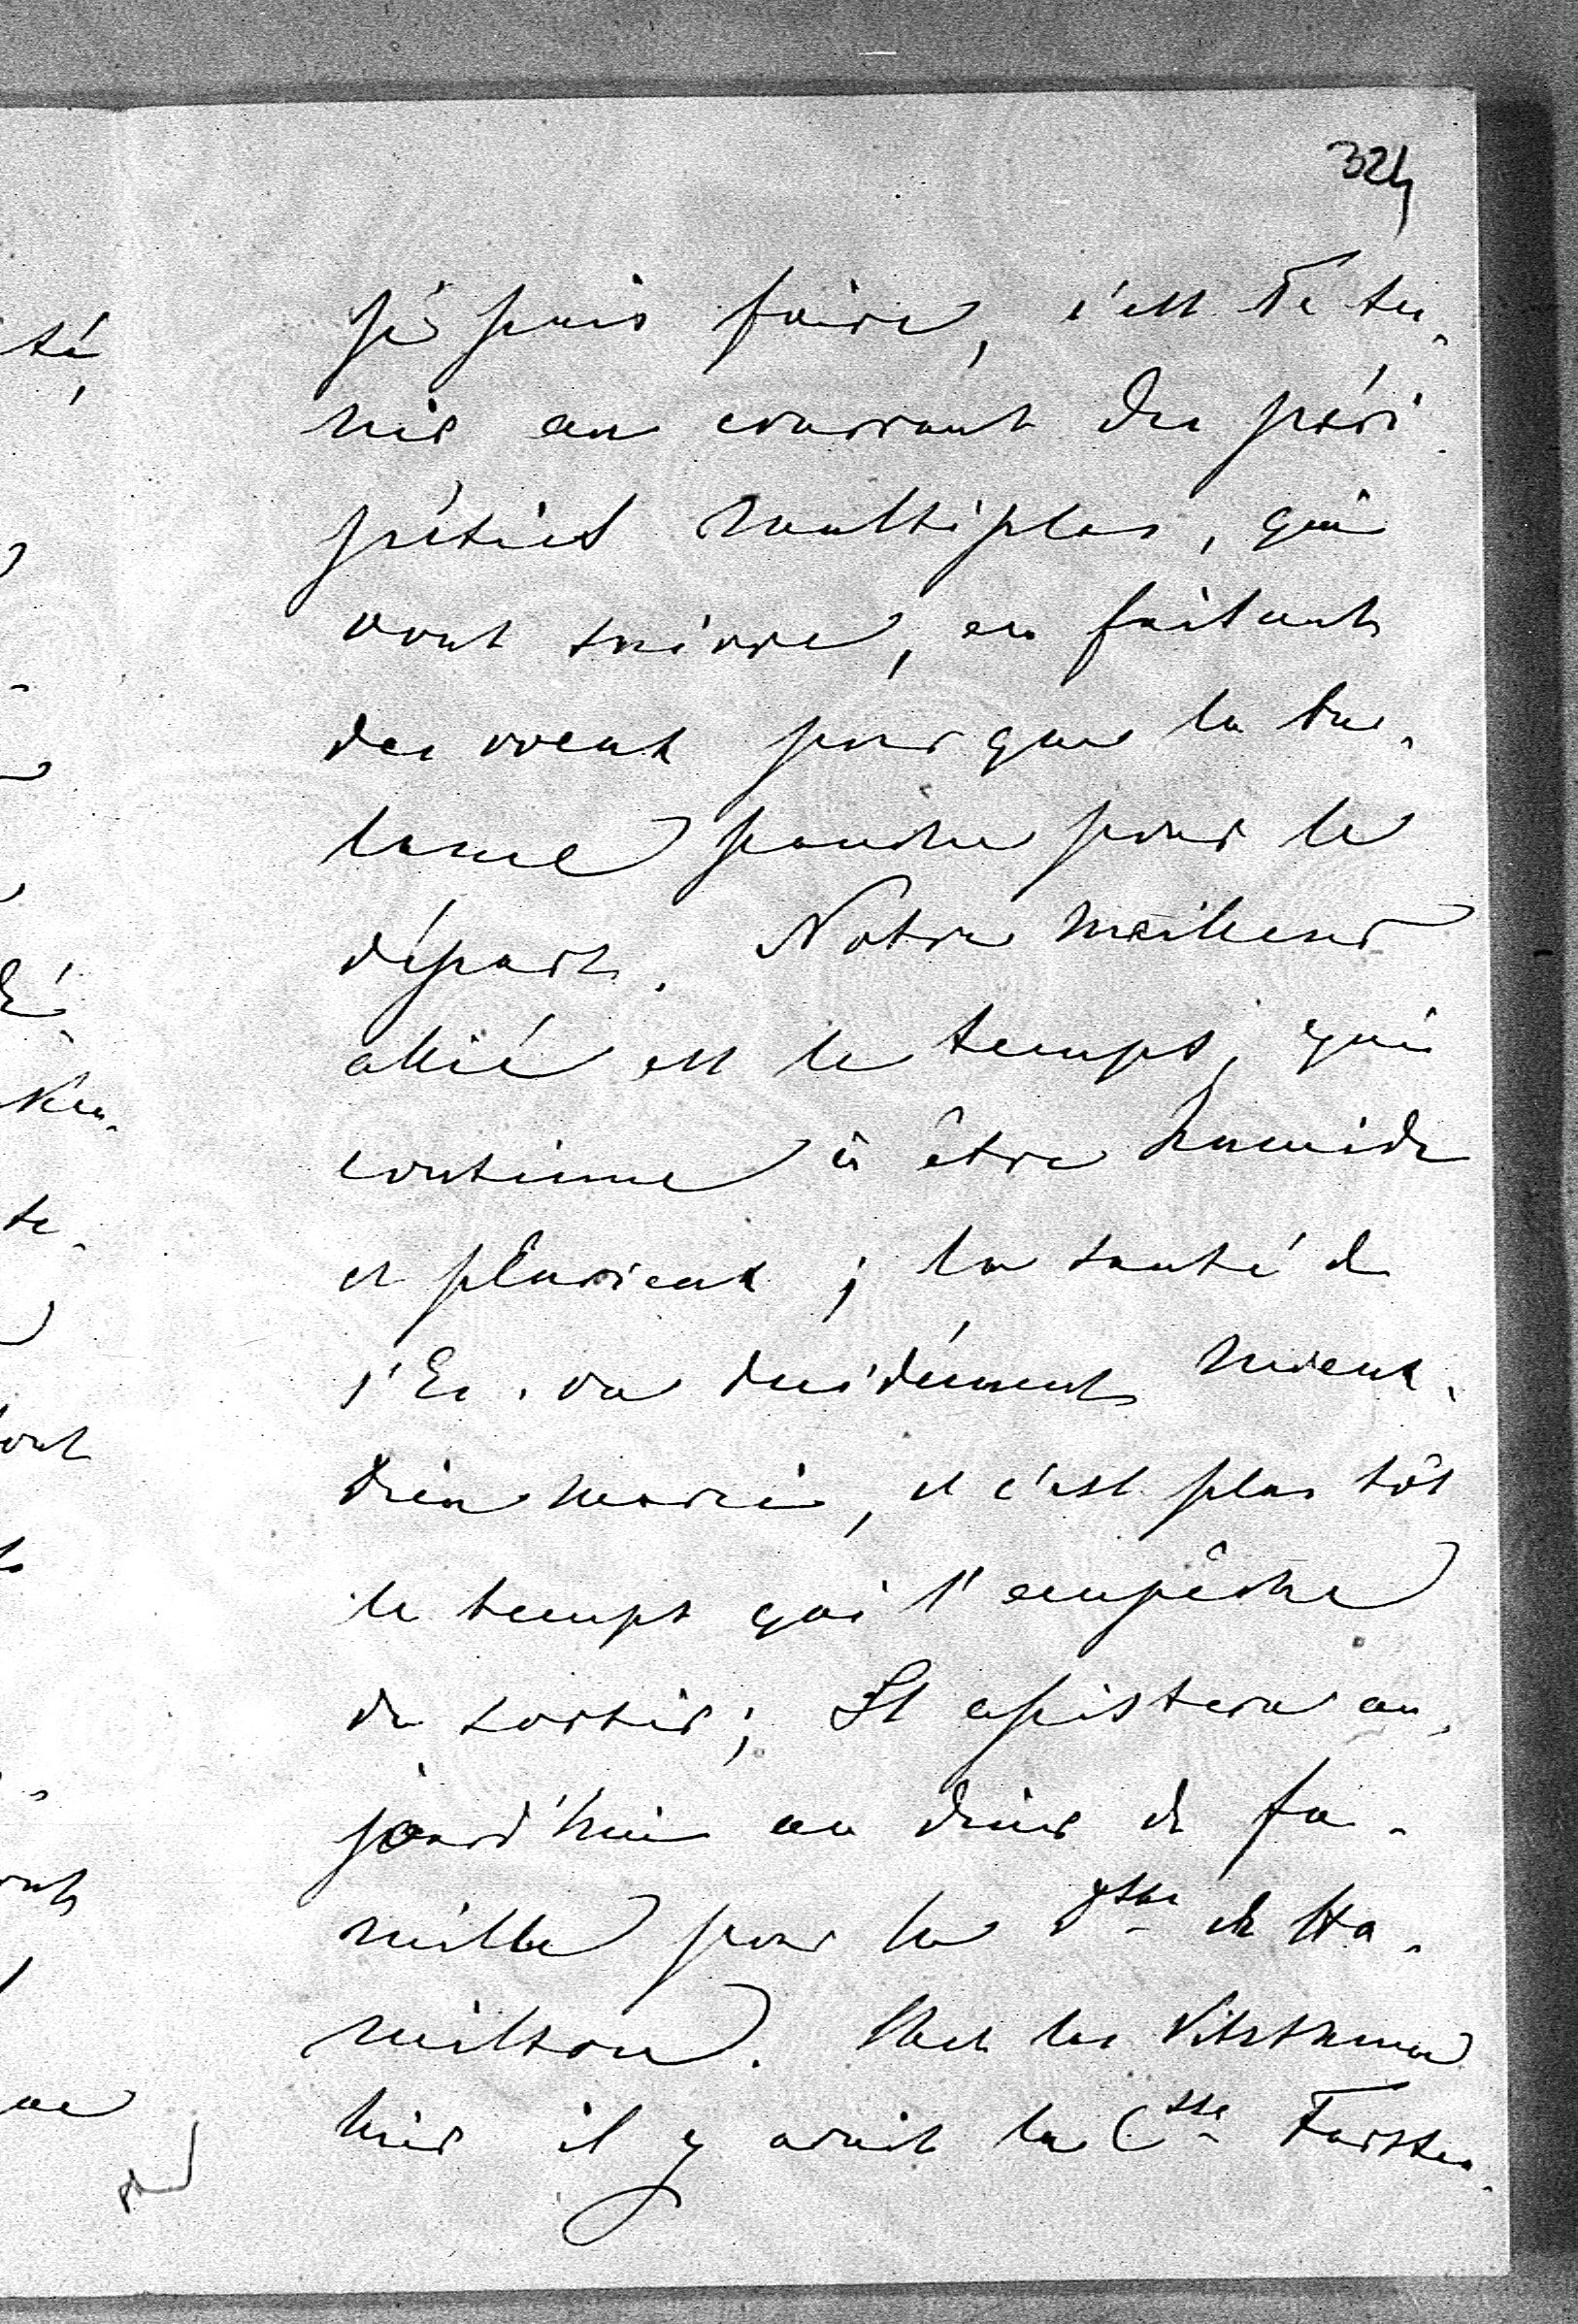 324
je puis faire, c'est Te te-
nir au courant des péri
péties multiples, qui
vont suivre, en faisant
des voeux pour que la ba-
lance penche pour le
départ. Notre meilleur
allié est le temps, qui
continue à être humide
et pluvieux ; la santé de
l'Er. va décidément mieux,
Dieu merci, et c'est plus tôt
le temps qui l'empêche
de sortir; Il assistera au-
jourd'hui au diner de fa-
mille pour la de Ha-
milton. Chez les Vitzthum
hier il y avait la Csse Fürsten-